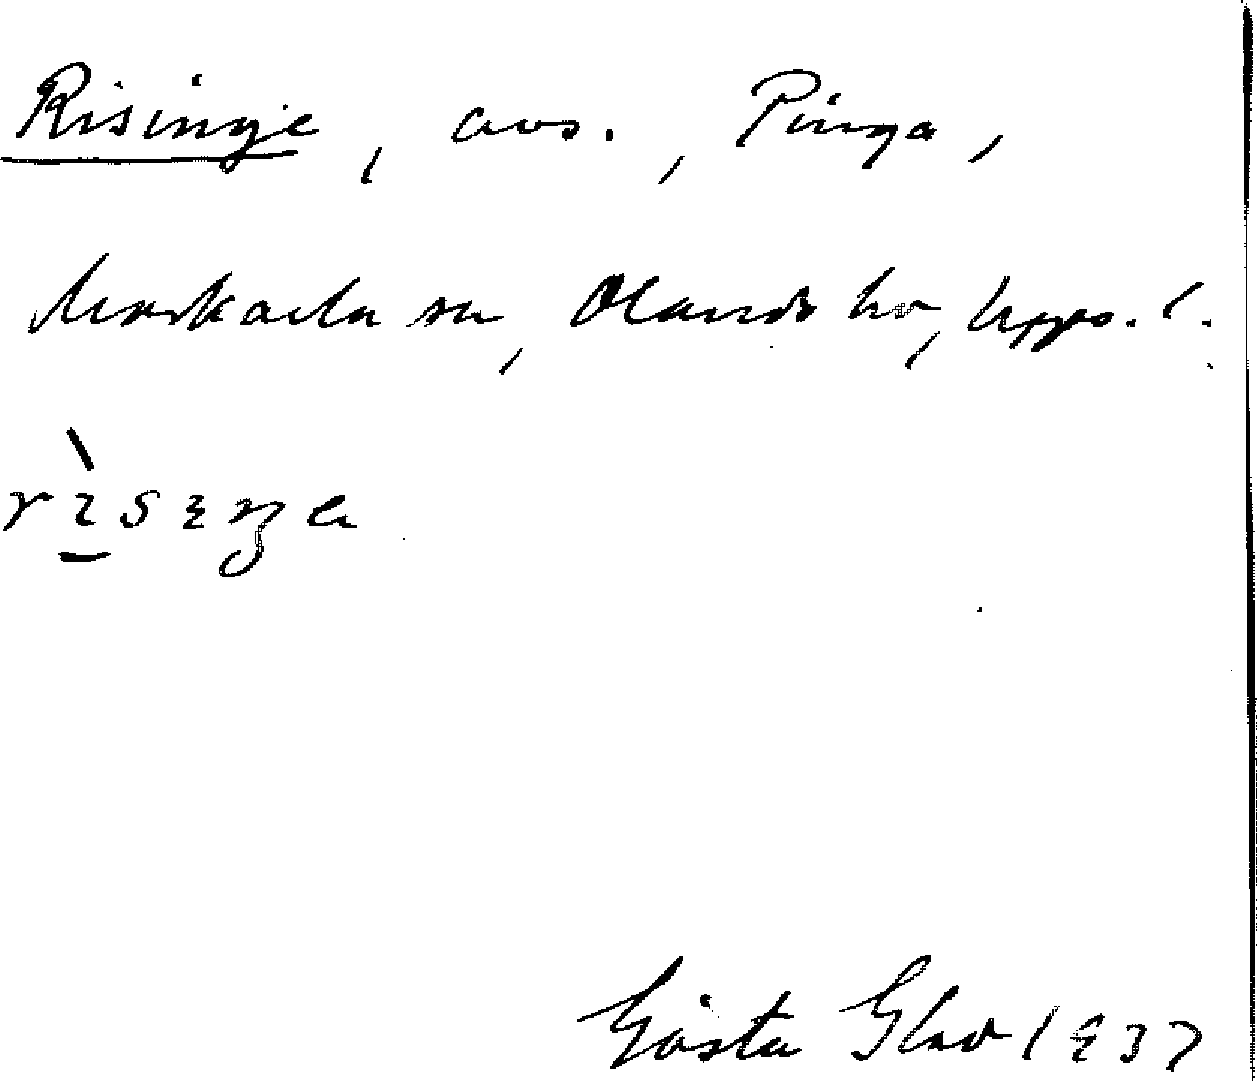 Risinge, avs., Pinga,
Morkarla sn, Olands hd, Upps. l.
Gösta Glad 1937